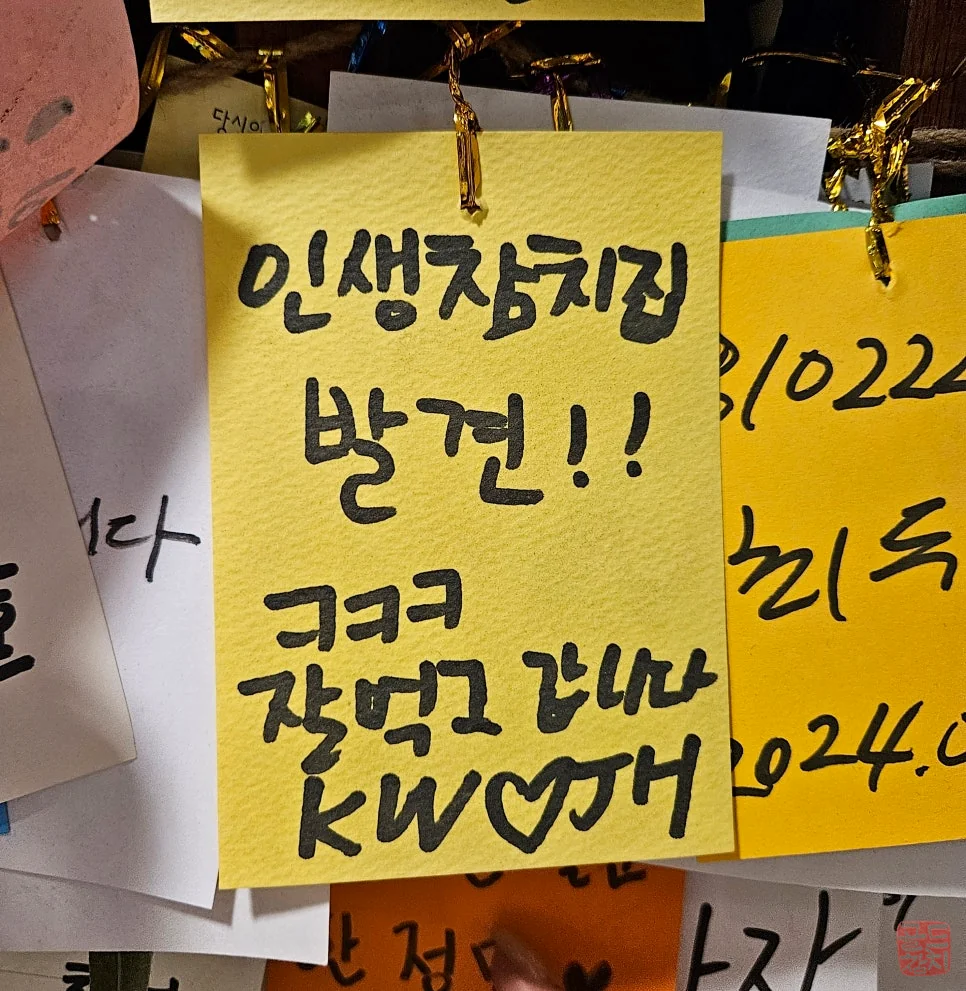 당시의
인생참치집
발견!!
ㅋㅋㅋ
잘먹고 갑니다
KW♡JH
니다
10224
2024.0